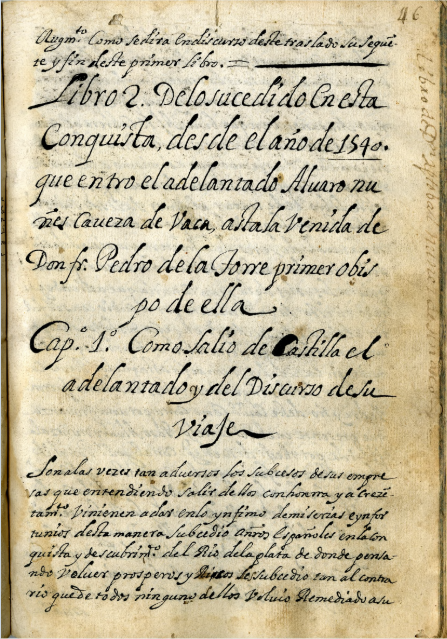 46
Augm.to Como se dira En discurso deste traslado su seguē-
te y fin deste primer libro.
Libro 2. Delo sucedido En esta
Conquista, desde el año de 1540.
que entro el adelantado Alvaro nu
ñes Caveza de Vaca, asta la Venida de
Don fr. Pedro de la Torre primer obis
po de ella
Cap.o 1.o Como salio de Castilla el
adelantado y del Discurso de su
Viaje
Son alas vezes tan adversos los subcesos de sus empre
sas que entendiendo salir dellos con honrra y acrezē-
tam.to vinienen a dar en lo ynfimo de miserias e ynfor
tunios desta manera subcedio a nros Españoles en la con
quista y descubrim.to del Rio de la plata de donde pensa-
ndo volver prosperos y Ricos les subcedio tan al contra
rio que de todos ninguno dellos volvio Remediado a su